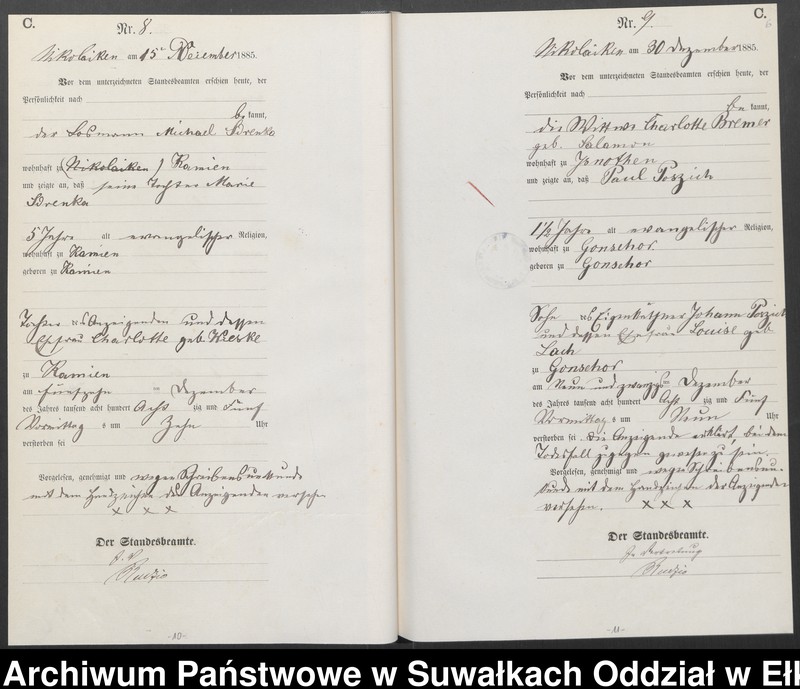 C.
Nr. 8.
Nikolaiken am 15ten Dezember 1885.
Vor dem unterzeichneten Standesbeamten erschien heute, der
Persönlichkeit nach
bekannt,
der Losmann Michael Brenka
wohnhaft zu (Nikolaiken) Kamien
und zeigte an, daß seine Tochter Marie
Brenka
5 Jahre alt evangelischer Religion,
wohnhaft zu Kamien
geboren zu Kamien
Tochter des Anzeigenden und dessen
Ehefrau Charlotte geb.
zu Kamien
am fünfzehn ten Dezember
des Jahres tausend acht hundert Acht zig und Fünf
Vormittag s um Zehn Uhr
verstorben sei
Vorgelesen, genehmigt und wegen Schreibensunkunde
mit dem Handzeichen des Anzeigenden versehen
x x x
Der Standesbeamte.
-10-
C.
Nr. 9.
Nikolaiken am 30 Dezember 1885.
Vor dem unterzeichneten Standesbeamten erschien heute, der
Persönlichkeit nach
bekannt,
die Wittwe Charlotte Bremer
geb. Salamon
wohnhaft zu Isnothen
und zeigte an, daß Paul Poszich
1½ Jahre alt evangelischer Religion,
wohnhaft zu Gonschor
geboren zu Gonschor
Sohn des Eigenkäthner Johann Poszich
und dessen Ehefrau Louise geb
Lach
zu Gonschor
am Neun und zwanzigsten Dezember
des Jahres tausend acht hundert Acht zig und Fünf
Vormittag s um Neun Uhr
verstorben sei Die Anzeigende erklärt, bei dem
Todesfall zugegen gewesen zu sein.
Vorgelesen, genehmigt und wegen Schreibensun-
kunde mit dem Handzeichen der Anzeigenden
versehen. x x x
Der Standesbeamte.
In Vertretung
-11-
Archiwum Państwowe w Suwałkach Oddział w Ełk